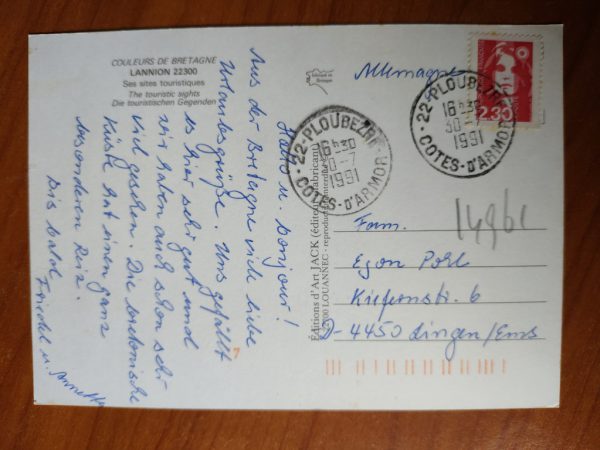 COULEURS DE BRETAGNE
LANNION 22300
Ses sites touristiques
The touristic sights
Die touristischen Gegenden
Hallo u. bonjour!
Aus der Bretagne viele liebe
Urlaubsgrüße. Uns gefällt
es hier sehr gut und
wir haben auch schon sehr
viel gesehen. Die bretonische
Küste hat einen ganz
besonderen Reiz.
Bis bald
Friedel u. Annette
Éditions d'Art JACK (éditeur fabricant)
22700 LOUANNEC - reproduction interdite
Allemagne
2.30
22-PLOUBEZRE
16 h30
30-7
1991
COTES-D'ARMOR
22-PLOUBEZRE
16 h30
0-7
1991
COTES-D'ARMOR
Fam.
Egon Pohl
Kiefernstr. 6
D-4450 Lingen/Ems